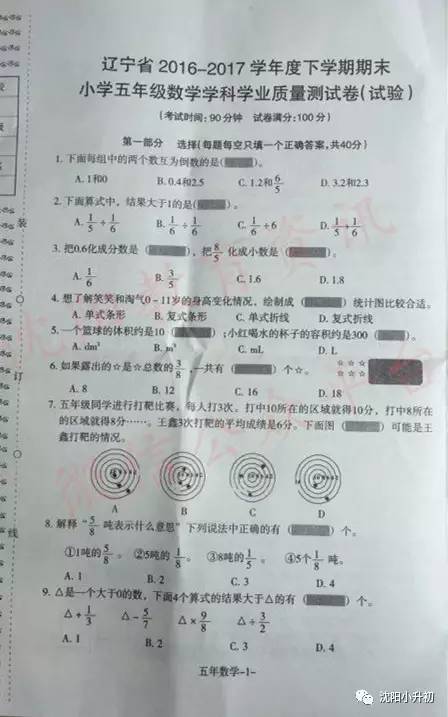 辽宁省 2016-2017 学年度下学期期末
小学五年级数学学科学业质量测试卷(试验)
(考试时间:90分钟 试卷满分:100分)
第一部分 选择(每题每空只填一个正确答案,共40分)
1. 下面每组中的两个数互为倒数的是( )。
A. 1和0 B. 0.4和2.5 C. 1.2和6/5 D. 3.2和2.3
2. 下面算式中, 结果大于1的是( )。
A. 1/5÷1/6 B. 1/6÷1/6 C. 1/6÷6 D. 1/6
3. 把0.6化成分数是( ), 把8/5化成小数是( )。
A. 1/6 B. 3/5 C. 1.6 D. 1.8
4. 想了解笑笑和淘气0-11岁的身高变化情况, 绘制成( )统计图比较合适。
A. 单式条形 B. 复式条形 C. 单式折线 D. 复式折线
5. 一个篮球的体积约是10( );小红喝水的杯子的容积约是300( )。
A. dm³ B. m³ C. mL D. L
6. 如果露出的☆是☆总数的3/8, 一共有( )个☆。
☆☆☆
☆☆☆
A. 8 B. 12 C. 16 D. 18
7. 五年级同学进行打靶比赛, 每人打3次。打中10所在的区域就得10分, 打中8所在
的区域就得8分……。王鑫3次打靶的平均成绩是6分。下面图( )可能是王
鑫打靶的情况。
A B C D
8. 解释“5/8吨表示什么意思”下列说法中正确的有( )个。
①1吨的5/8。 ②5吨的1/8。 ③8吨的1/5。 ④5个1/8吨。
A. 1 B. 2 C. 3 D. 4
9. △是一个大于0的数, 下面4个算式的结果大于△的有( )个。
△+1/3 △-5/7 △×9/8 △÷3/2
A. 1 B. 2 C. 3 D. 4
五年数学-1-
装
订
线
沈阳小升初